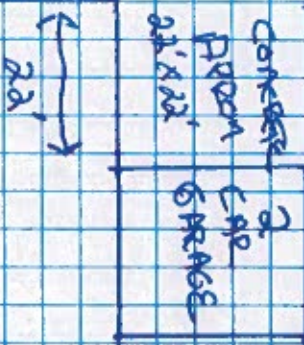 CONCRETE
APRON
22' X 22'
2
CAR
GARAGE
22'